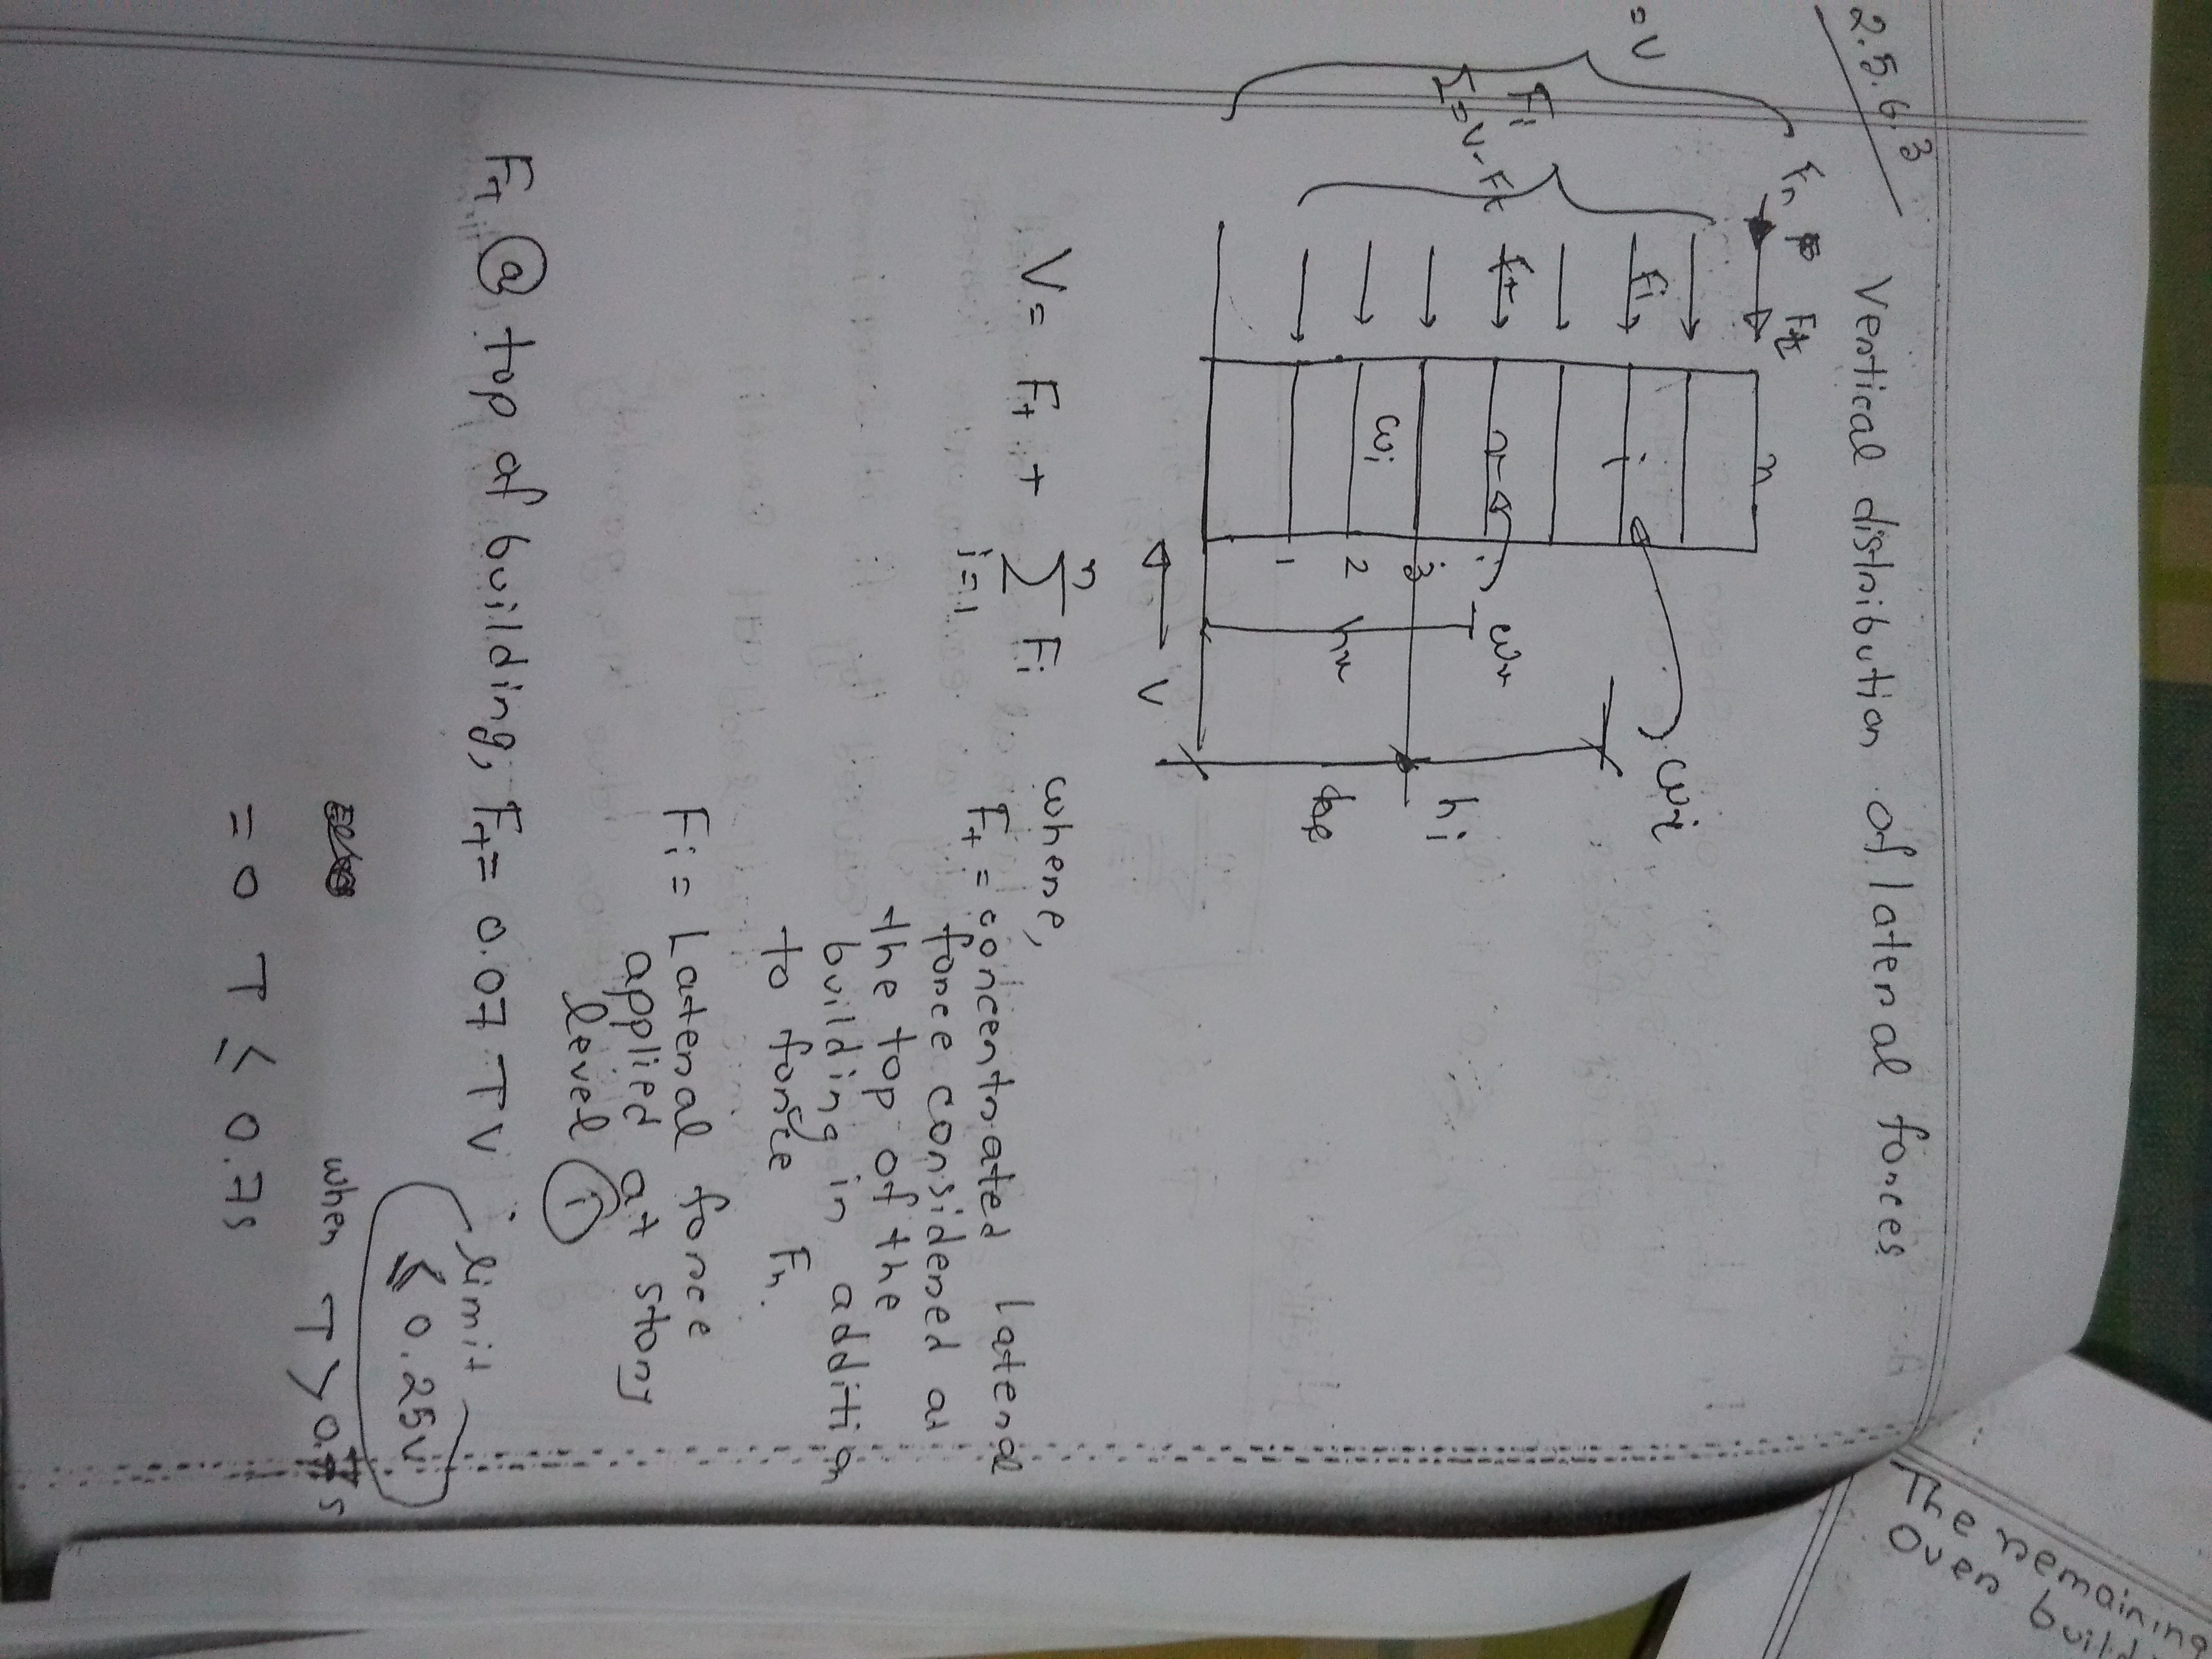 2.5.6.3 Vertical distribution of lateral forces
Fn Ft
n
= V
Fi
Σ = V - Ft
Fi
i
wi
x
wx
wi
3
2
1
hx
hi
V
V = Ft + Σ Fi
n
i=1
where,
Ft = concentrated lateral
force considered at
the top of the
building in addition
to force Fn.
Fi = Lateral force
applied at story
level i
Ft @ top of building, Ft = 0.07 TV ; limit
≤ 0.25V
when T > 0.7s
= 0 T ≤ 0.7s
The remaining
Over build